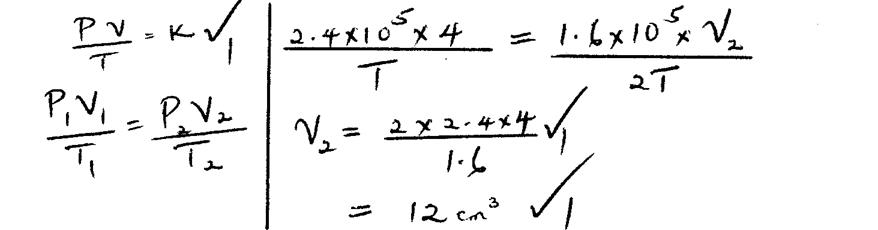 PV/T = K ✓1
P₁V₁/T₁ = P₂V₂/T₂
2.4×10⁵×4/T = 1.6×10⁵×V₂/2T
V₂ = 2×2.4×4/1.6 ✓1
= 12 cm³ ✓1